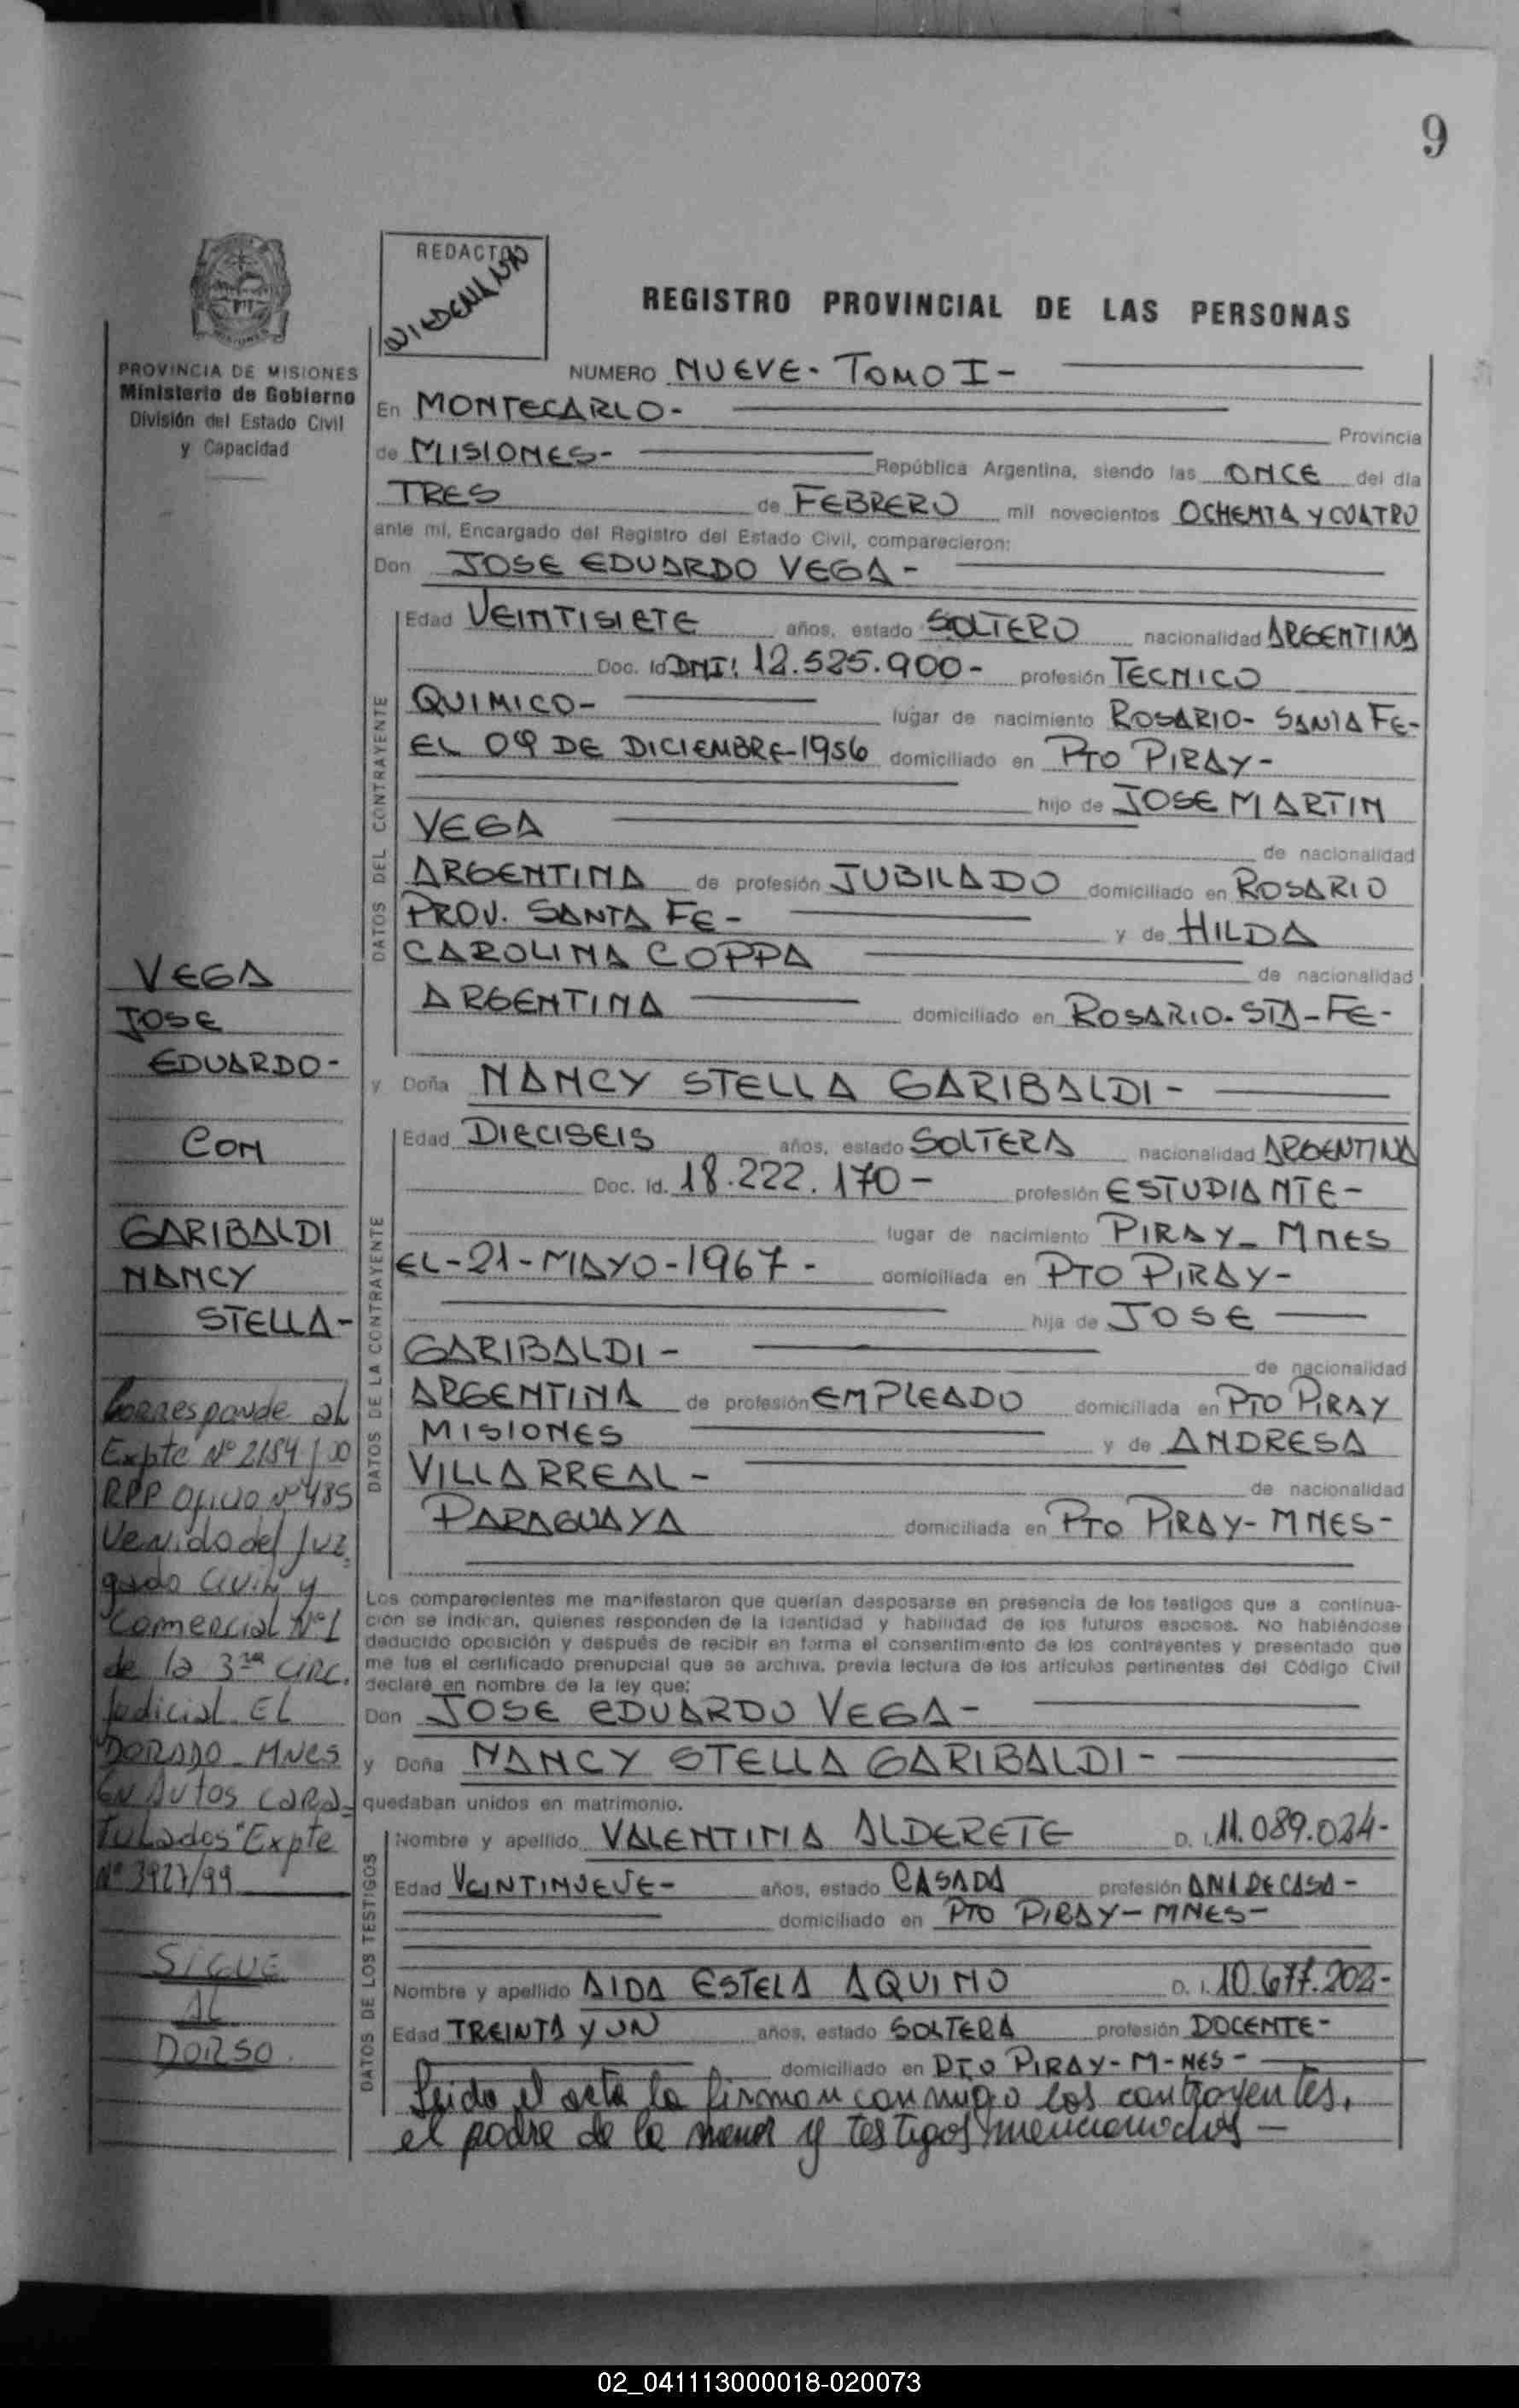 9
REDACTOR
REGISTRO PROVINCIAL DE LAS PERSONAS
PROVINCIA DE MISIONES
Ministerio de Gobierno
División del Estado Civil
y Capacidad
NUMERO NUEVE - TOMO I -
En MONTECARLO -
Provincia
de MISIONES - República Argentina, siendo las ONCE del día
TRES de FEBRERO mil novecientos OCHENTA Y CUATRO
ante mi, Encargado del Registro del Estado Civil, comparecieron:
Don JOSE EDUARDO VEGA -
DATOS DEL CONTRAYENTE
Edad VEINTISIETE años, estado SOLTERO nacionalidad ARGENTINA
Doc. Id DNI: 12.525.900 - profesión TECNICO
QUIMICO - lugar de nacimiento ROSARIO - SANTA FE -
EL 09 DE DICIEMBRE - 1956 domiciliado en PTO PIRAY -
hijo de JOSE MARTIN
VEGA
de nacionalidad
ARGENTINA de profesión JUBILADO domiciliado en ROSARIO
PROV. SANTA FE - y de HILDA
CAROLINA COPPA
de nacionalidad
ARGENTINA domiciliado en ROSARIO - STA - FE -
y Doña NANCY STELLA GARIBALDI -
DATOS DE LA CONTRAYENTE
Edad DIECISEIS años, estado SOLTERA nacionalidad ARGENTINA
Doc. Id. 18.222.170 - profesión ESTUDIANTE -
lugar de nacimiento PIRAY - MNES
EL - 21 - MAYO - 1967 - domiciliada en PTO PIRAY -
hija de JOSE
GARIBALDI -
de nacionalidad
ARGENTINA de profesión EMPLEADO domiciliada en PTO PIRAY
MISIONES y de ANDRESA
VILLARREAL -
de nacionalidad
PARAGUAYA domiciliada en PTO PIRAY - MNES -
Los comparecientes me manifestaron que querían desposarse en presencia de los testigos que a continua-
ción se indican, quienes responden de la identidad y habilidad de los futuros esposos. No habiéndose
deducido oposición y después de recibir en forma el consentimiento de los contrayentes y presentado que
me fue el certificado prenupcial que se archiva, previa lectura de los artículos pertinentes del Código Civil
declaré en nombre de la ley que:
Don JOSE EDUARDO VEGA -
y Doña NANCY STELLA GARIBALDI -
quedaban unidos en matrimonio.
DATOS DE LOS TESTIGOS
Nombre y apellido VALENTINA ALDERETE D. I. 11.089.024 -
Edad VEINTINUEVE - años, estado CASADA profesión AMA DE CASA -
domiciliado en PTO PIRAY - MNES -
Nombre y apellido AIDA ESTELA AQUINO D. I. 10.677.202 -
Edad TREINTA Y UN años, estado SOLTERA profesión DOCENTE -
domiciliado en PTO PIRAY - M - NES -
Leido el acta la firman conmigo los contrayentes,
el padre de la menor y testigos mencionados -
VEGA
JOSE
EDUARDO -
CON
GARIBALDI
NANCY
STELLA -
Corresponde al
Expte Nº 2184/00
RPP Oficio Nº 485
Venido del Juz-
gado Civil y
Comercial Nº 1
de la 3ra CIRC.
Judicial EL
DORADO - MNES
EN AUTOS CARA-
TULADOS "Expte
Nº 3927/99
SIGUE
AL
DORSO.
02_041113000018-020073